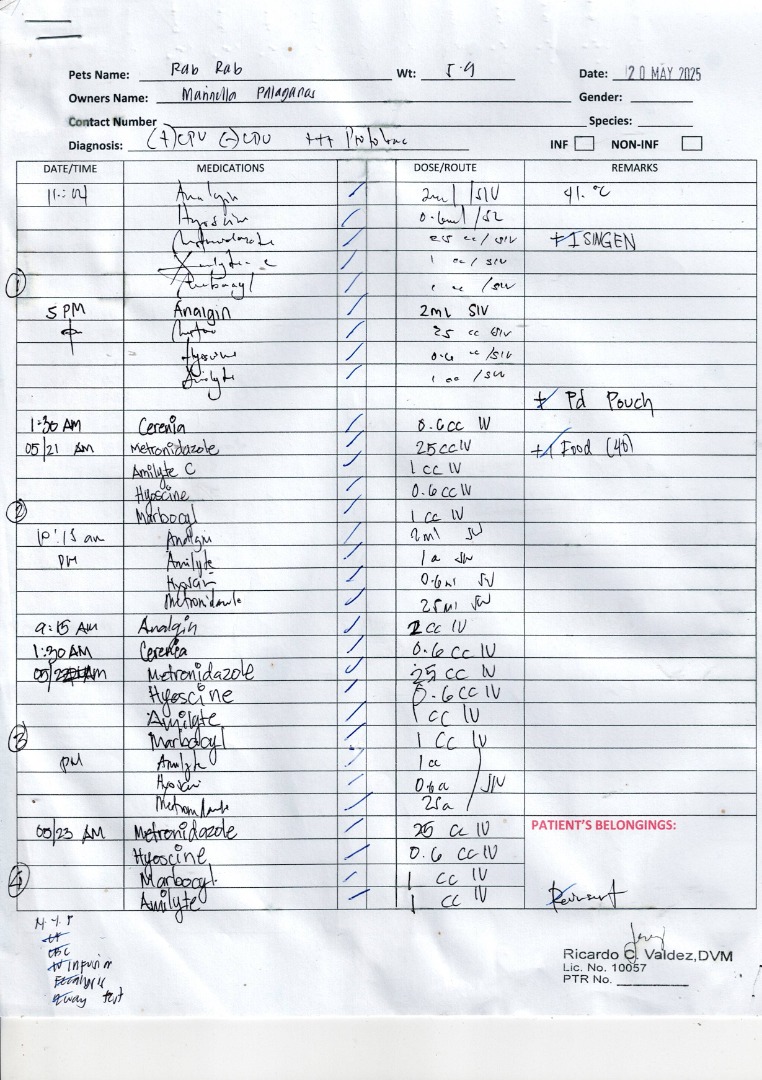 Pets Name: Rab Rab Wt: 5.9 Date: 20 MAY 2025
Owners Name: Marinella Palaganas Gender:
Contact Number Species:
Diagnosis: (+) CPV (-) CDV +++ Protozoa INF NON-INF
DATE/TIME MEDICATIONS DOSE/ROUTE REMARKS
11:04 Analgin 2ml / SIV 41. °C
Hyoscine 0.6ml /
25 cc / SIV ISINGEN
1 cc / SIV
1 cc / SIV
1
5 PM Analgin 2ml SIV
25 cc SIV
Hyoscine 0.6 cc / SIV
Amilyte 1 cc / SIV
Pd Pouch
1:30 AM Cerenia 0.6cc IV
05/21 AM Metronidazole 25cc IV +1 Food (40)
Amilyte C 1 cc IV
Hyoscine 0.6cc IV
2 Marbocyl 1 cc IV
10:15 am Analgin 2ml SIV
PM Amilyte 1cc SIV
Hyoscin 0.6ml SIV
Metronidazole 25ml SIV
9:15 AM Analgin 2cc IV
1:30 AM Cerenia 0.6 cc IV
05/22 AM Metronidazole 25 cc IV
Hyoscine 0.6cc IV
Amilyte 1 cc IV
3 Marbocyl 1 cc IV
PM Amilyte 1cc
Hyoscin 0.6cc SIV
Metronidazole 25cc
05/23 AM Metronidazole 25 cc IV PATIENT'S BELONGINGS:
Hyoscine 0.6 cc IV
4 Marbocyl 1 cc IV
Amilyte 1 cc IV
CBC
IV Infusion
Fecalysis
4way test
Ricardo C. Valdez,DVM
Lic. No. 10057
PTR No.